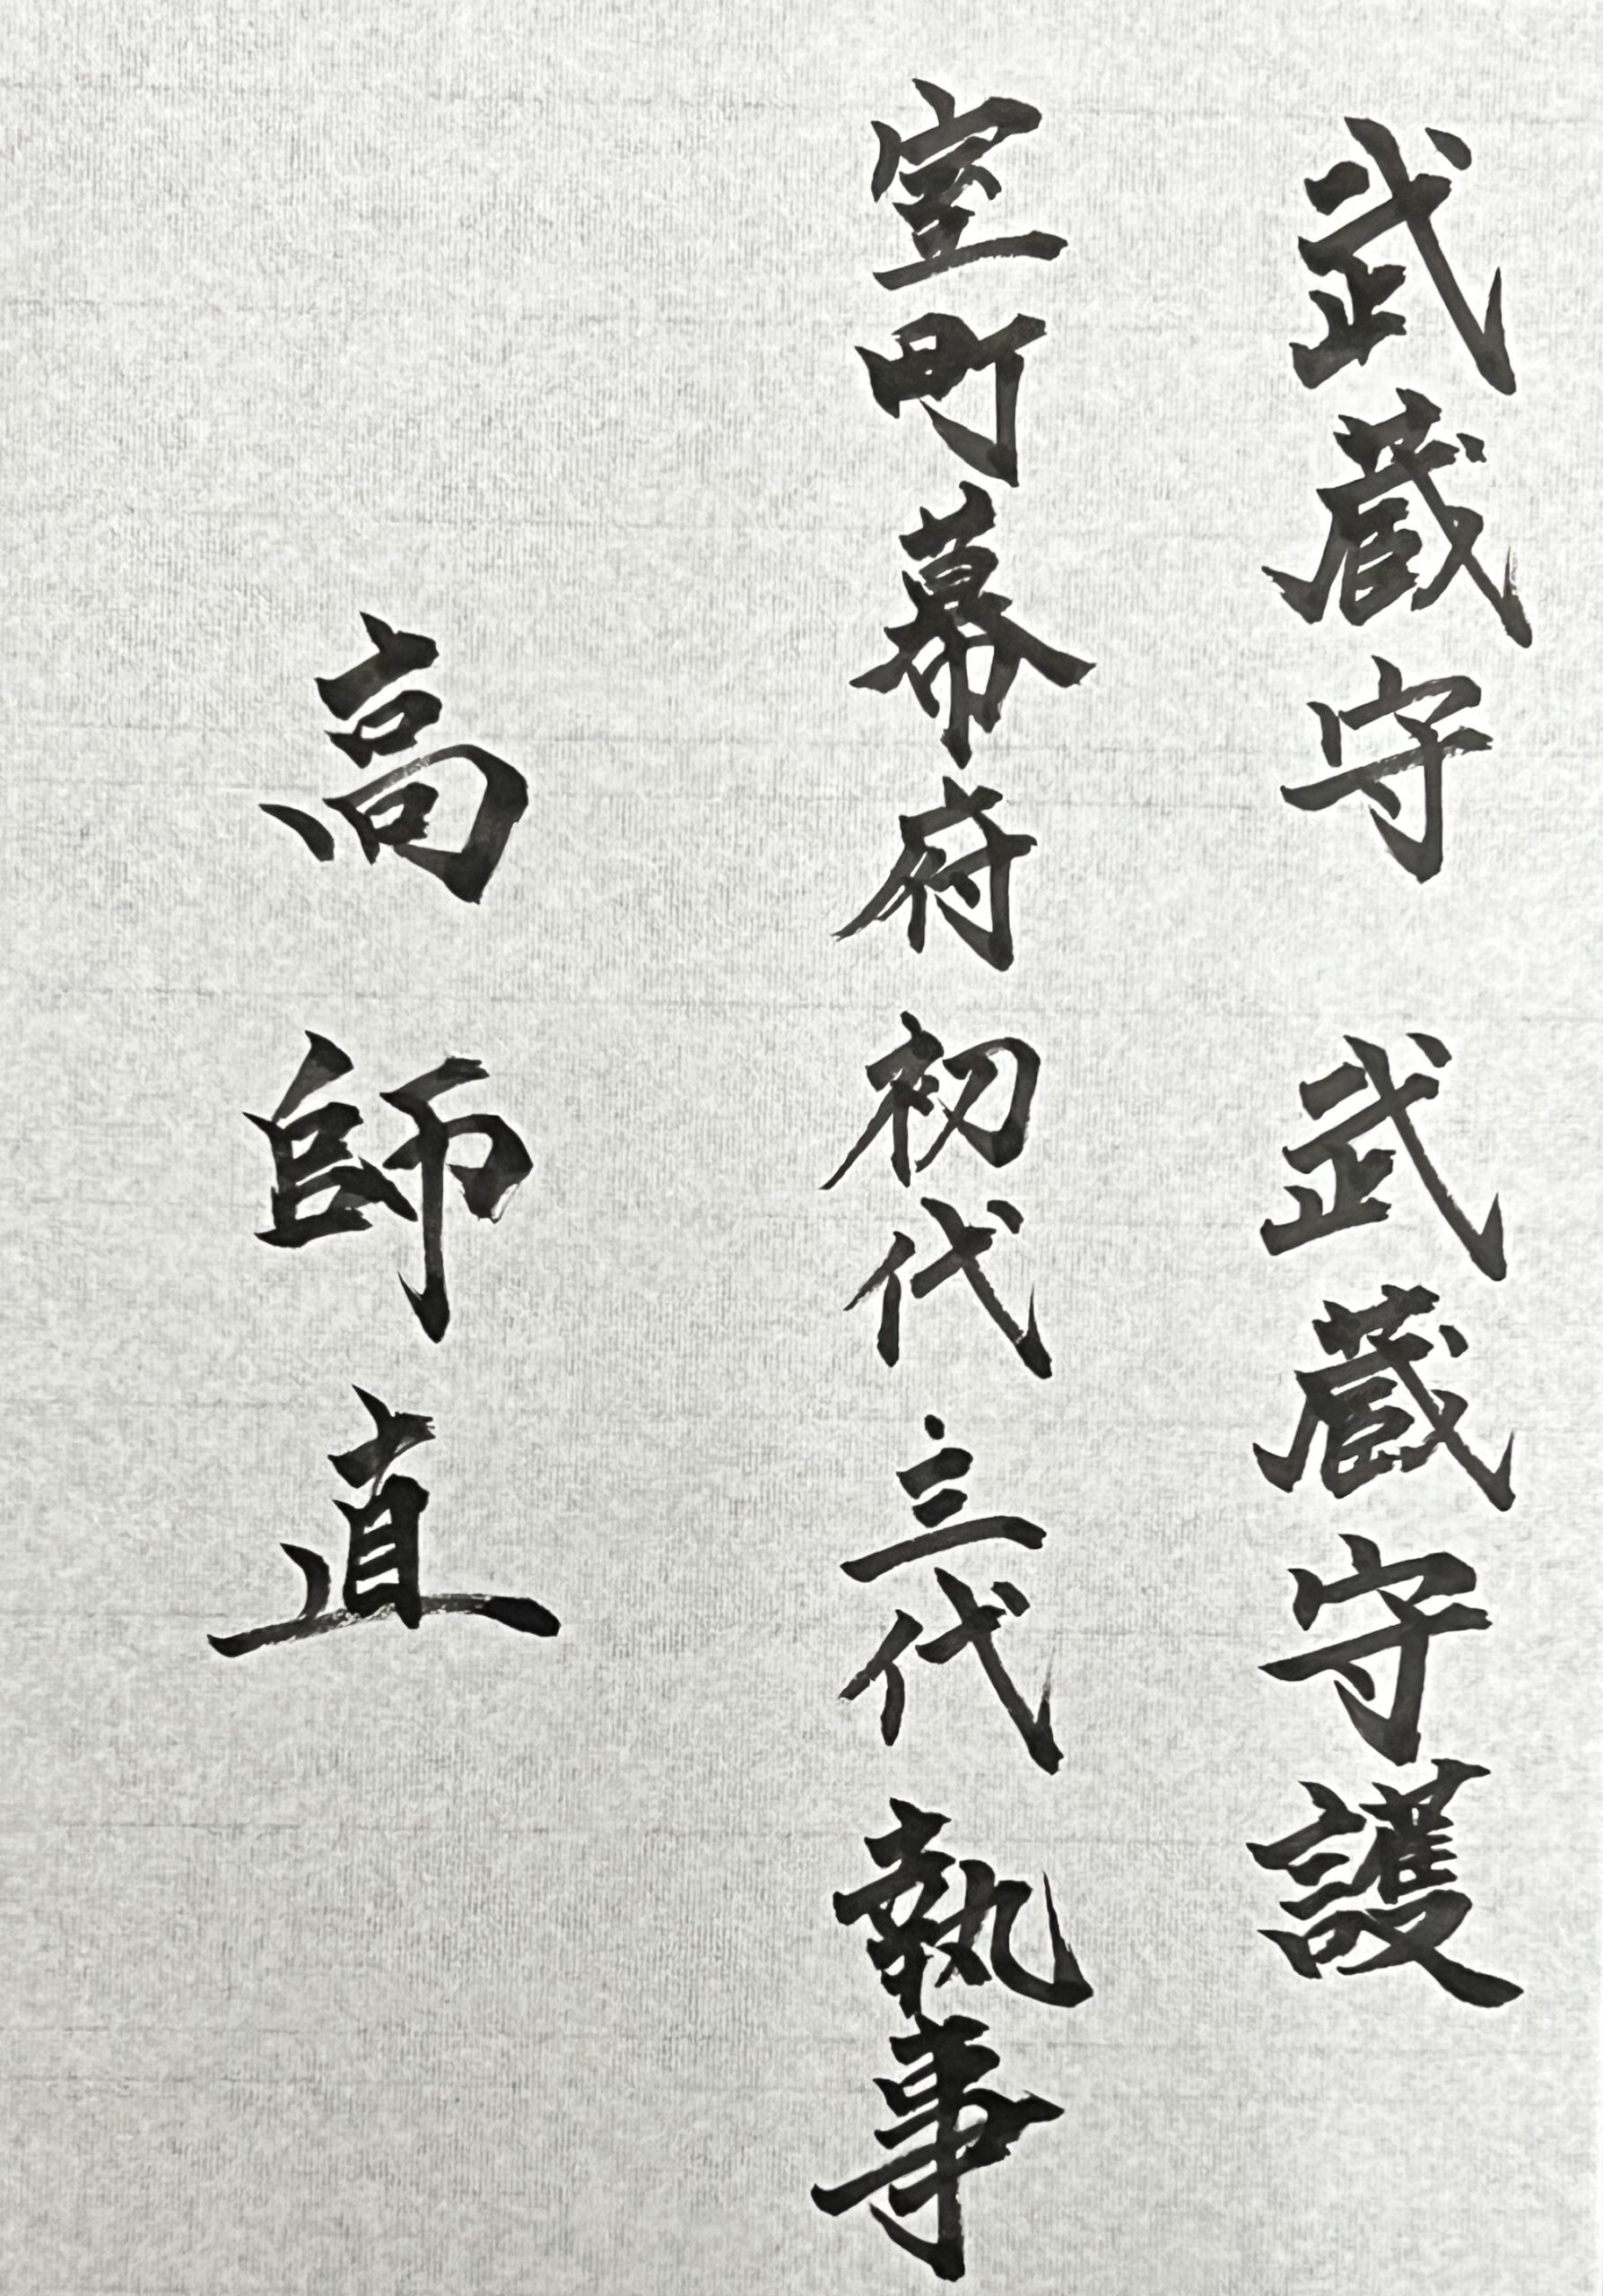 武蔵守 武蔵守護
室町幕府 初代 三代 執事
高師直